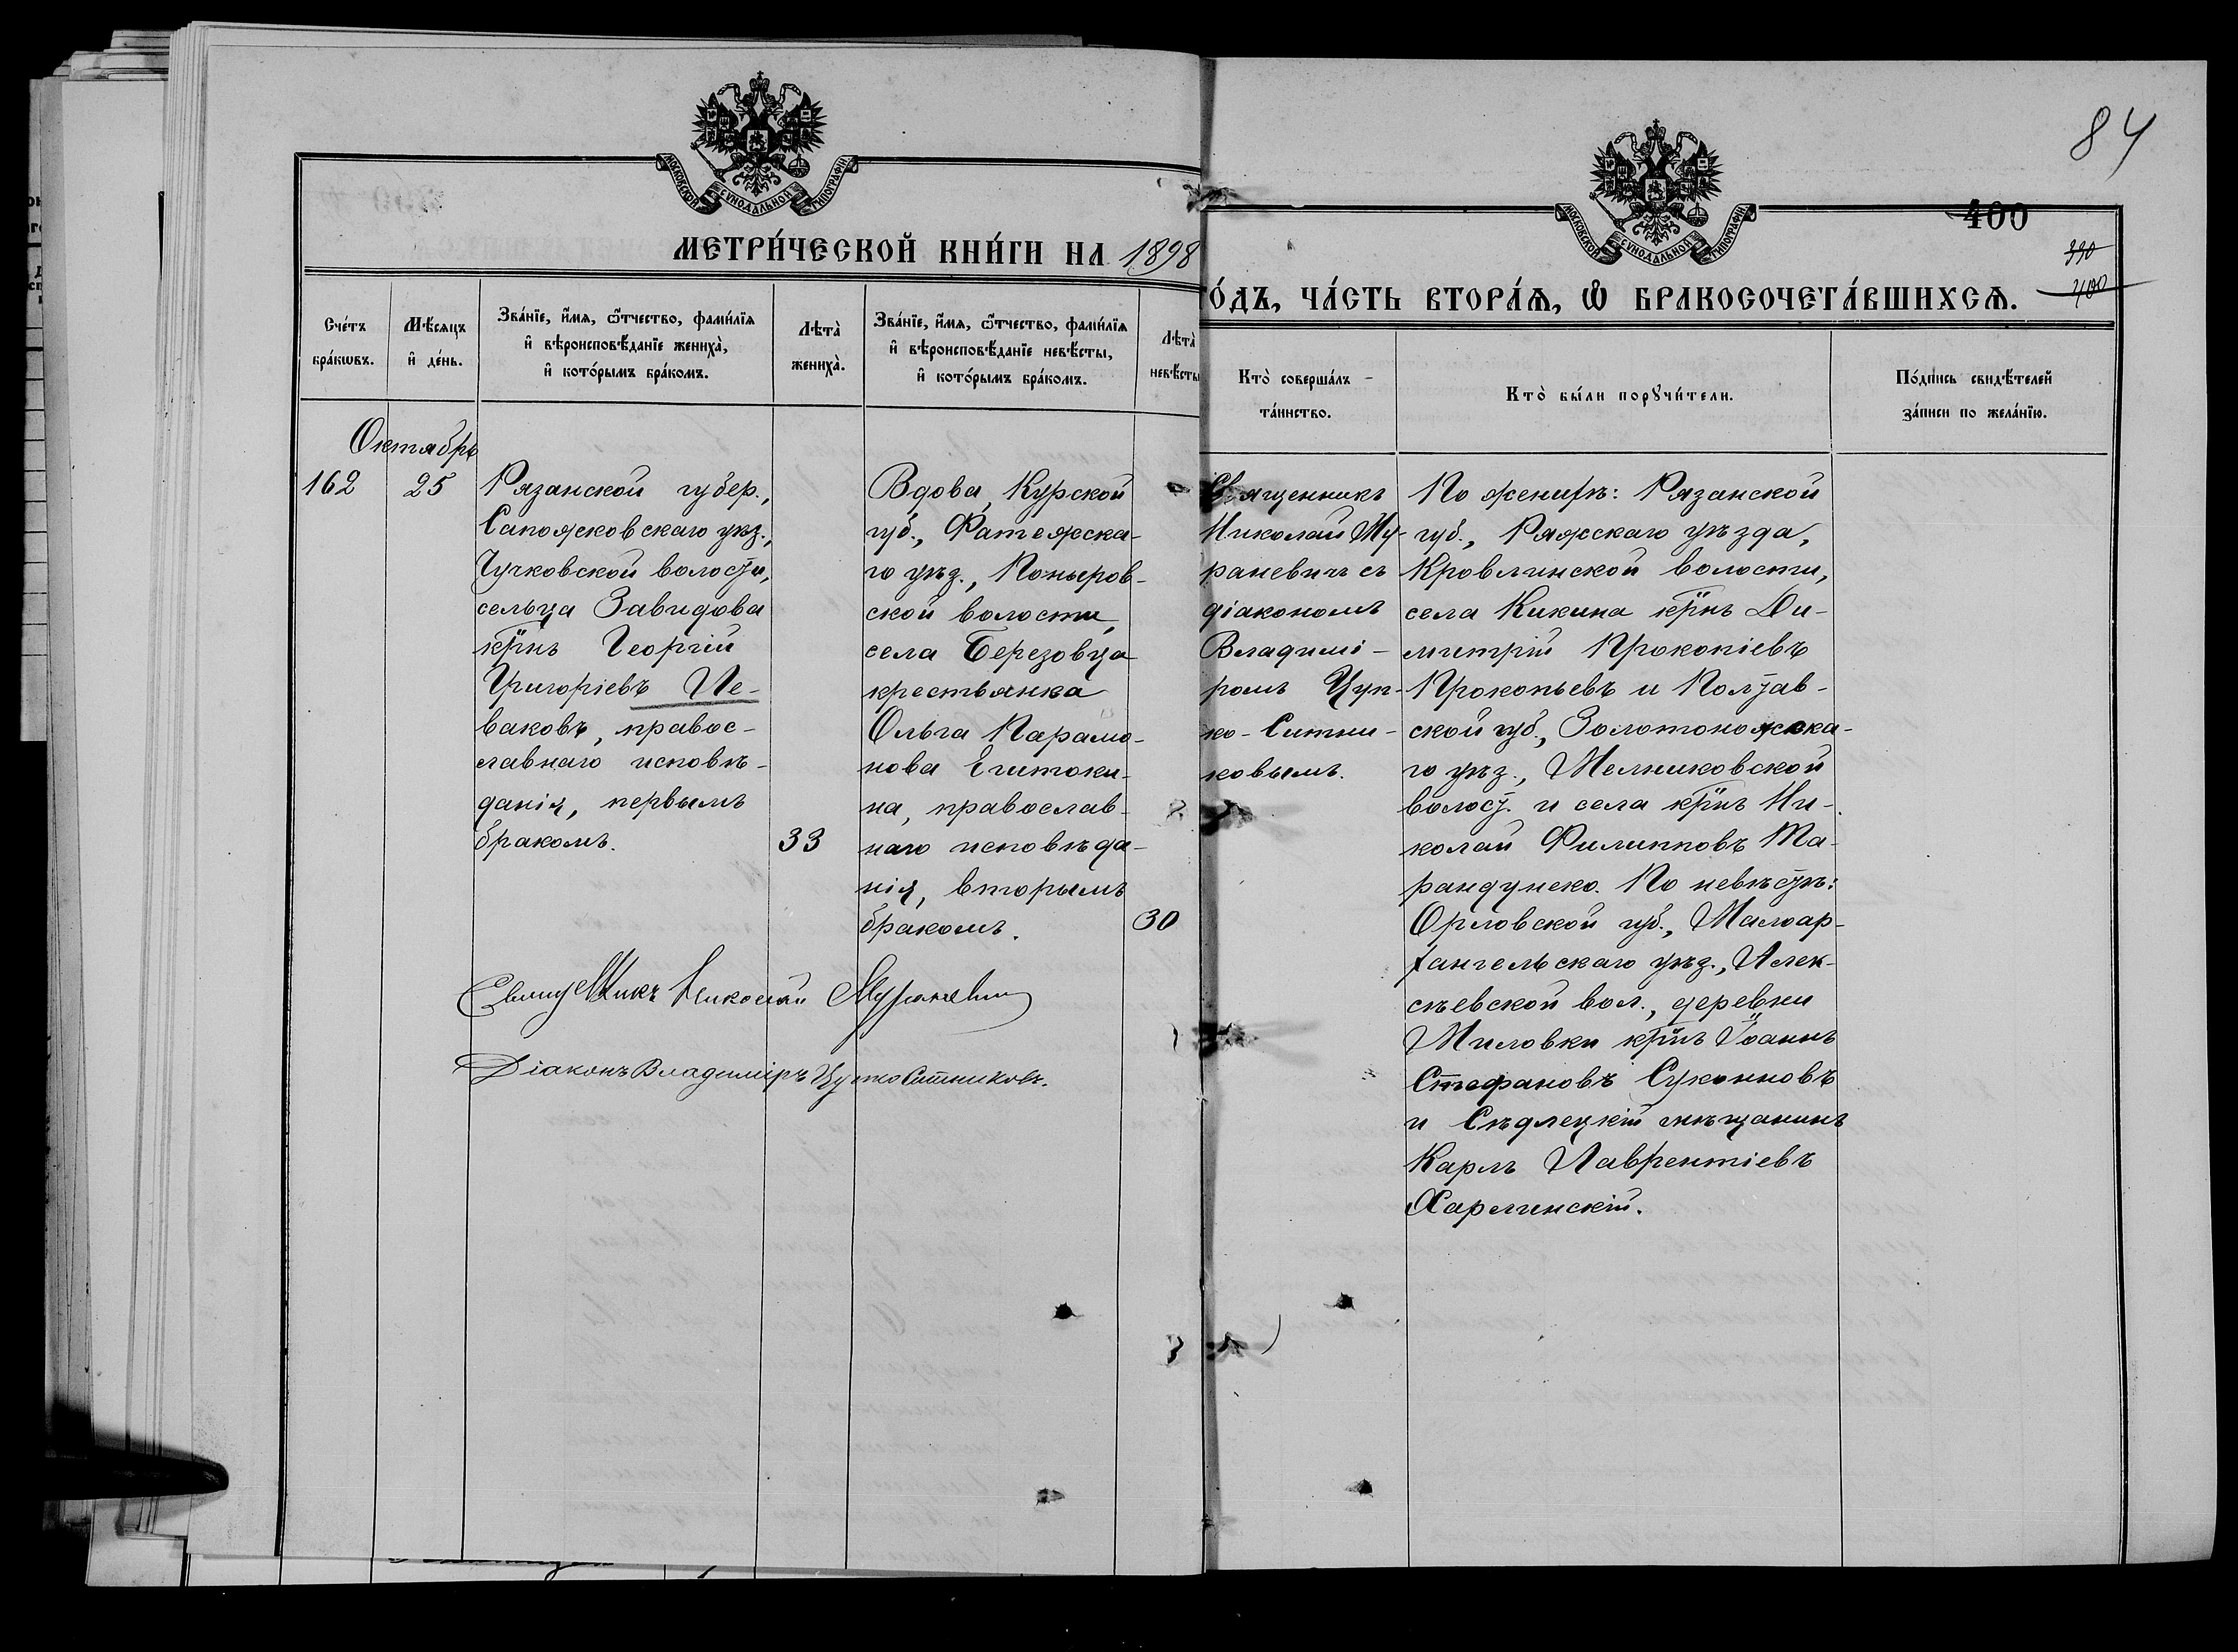 84
400
390
400
МОСКОВСКОЙ СѴНОДАЛЬНОЙ ТИПОГРАФІИ
МОСКОВСКОЙ СѴНОДАЛЬНОЙ ТИПОГРАФІИ
МЕТРИ́ЧЕСКОЙ КНИ́ГИ НА 1898
О́ДЪ, ЧА́СТЬ ВТОРА́Ѧ, Ѽ БРАКОСОЧЕТА́ВШИХСѦ.
Сче́тъ бра́кѡвъ.
Мѣ́сяцъ и҆ де́нь.
Зва́нїе, и҆́мя, ѻ҆́тчество, фами́лїя и҆ вѣроисповѣ́данїе жениха̀, и҆ кото́рымъ бра́комъ.
Лѣта̀ жениха̀.
Зва́нїе, и҆́мя, ѻ҆́тчество, фами́лїя и҆ вѣроисповѣ́данїе невѣ́сты, и҆ кото́рымъ бра́комъ.
Лѣта̀ невѣ́сты
Кто̀ соверша́лъ та́инство.
Кто̀ бы́ли порꙋчи́тели.
По́дпись свидѣ́телей за́писи по жела́нїю.
Октябрь
162
25
Рязанской губер.,
Сапожковскаго уѣз.,
Чучковской волости,
сельца Завидова
кр̃нъ Георгій
Григоріевъ Ле-
ваковъ, правос-
лавнаго исповѣ-
данія, первымъ
бракомъ.
33
Вдова, Курской
губ., Фатежска-
го уѣзд., Поныров-
ской волости,
села Березовца
крестьянка
Ольга Парамо-
нова Египтоки-
на, православ-
наго исповѣда-
нія, вторымъ
бракомъ.
30
Священникъ
Николай Му-
раневичъ съ
діакономъ
Владимі-
ромъ Цуп-
ко-Ситни-
ковымъ.
По женихѣ: Рязанской
губ., Ряжскаго уѣзда,
Кровлинской волости,
села Кикина кр̃нъ Ди-
митрій Прокопіевъ
Прокопьевъ и Полтав-
ской губ., Золотоножска-
го уѣз., Мелниковской
волост. и села кр̃нъ Ни-
колай Филипповъ Ма-
рандуиско. По невѣстѣ:
Орловской губ., Малоар-
хангельскаго уѣзд., Алек-
сѣевской вол., деревни
Миловки кр̃нъ Іоаннъ
Стефановъ Суконновъ
и Сѣдлецкій мѣщанинъ
Карлъ Лаврентіевъ
Харлинскій.
Священникъ Николай Мураневич
Діаконъ Владиміръ Цупко Ситниковъ.